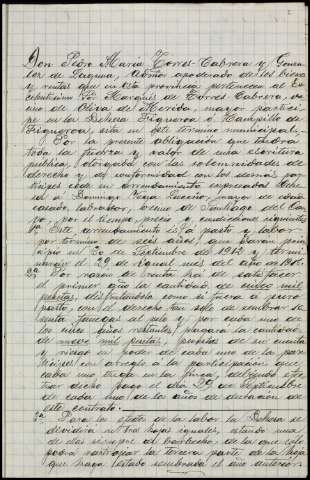 Don Pedro Maria Torres-Cabrera y Gonza-
lez de Laguna, Admor apoderado de los bienes
y rentas que en esta provincia pertenecen al Ex-
celentisimo Sor Marqués de Torres-Cabrera, ve-
cino de Oliva de Merida, mayor participe
en la Dehesa Figueroa ó Campillo de
Figueroa, sita en este termino municipal.
Por la presente obligacion que tendra
toda la fuerza y valor de una escritura
publica, otorgada con las solemnidades de
derecho y de conformidad con los demás par-
ticipes cede en arrendamiento expresada Dehe-
sa á Domingo Vega, mayor de edad
casado, labrador, vecino de Santiago del Cam-
po, por el tiempo, precio y condiciones siguientes
1ª Este arrendamiento es á pasto y labor
por termino de seis años, que daran prin-
cipio en 30 de Septiembre de 1912 y ter-
minarán el 29 de igual mes del año de 1918.
2ª Por razon de renta ha de satisfacer
el primer año la cantidad de cinco mil
pesetas, disfrutandola como si fuera á puro
pasto, con el derecho tan solo de sembrar se-
senta fanegas al and y por cada uno de
los cinco años restantes, pagará la cantidad
de nueve mil pesetas, puestas de su cuenta
y riesgo en poder de cada uno de los par-
ticipes con arreglo á la participacion que
cada uno tenga en la finca, debiendo efec-
tuar dicho pago el dia 29 de Septiembre
de cada uno de los años de duracion de
este contrato.
3ª Para los efectos de la labor la Dehesa se
dividira en tres hojas iguales, estando una
de ellas siempre de barbecho, de la que solo
podrá rastrojar la tercera parte de la hoja
que haya estado sembrada el año anterior.